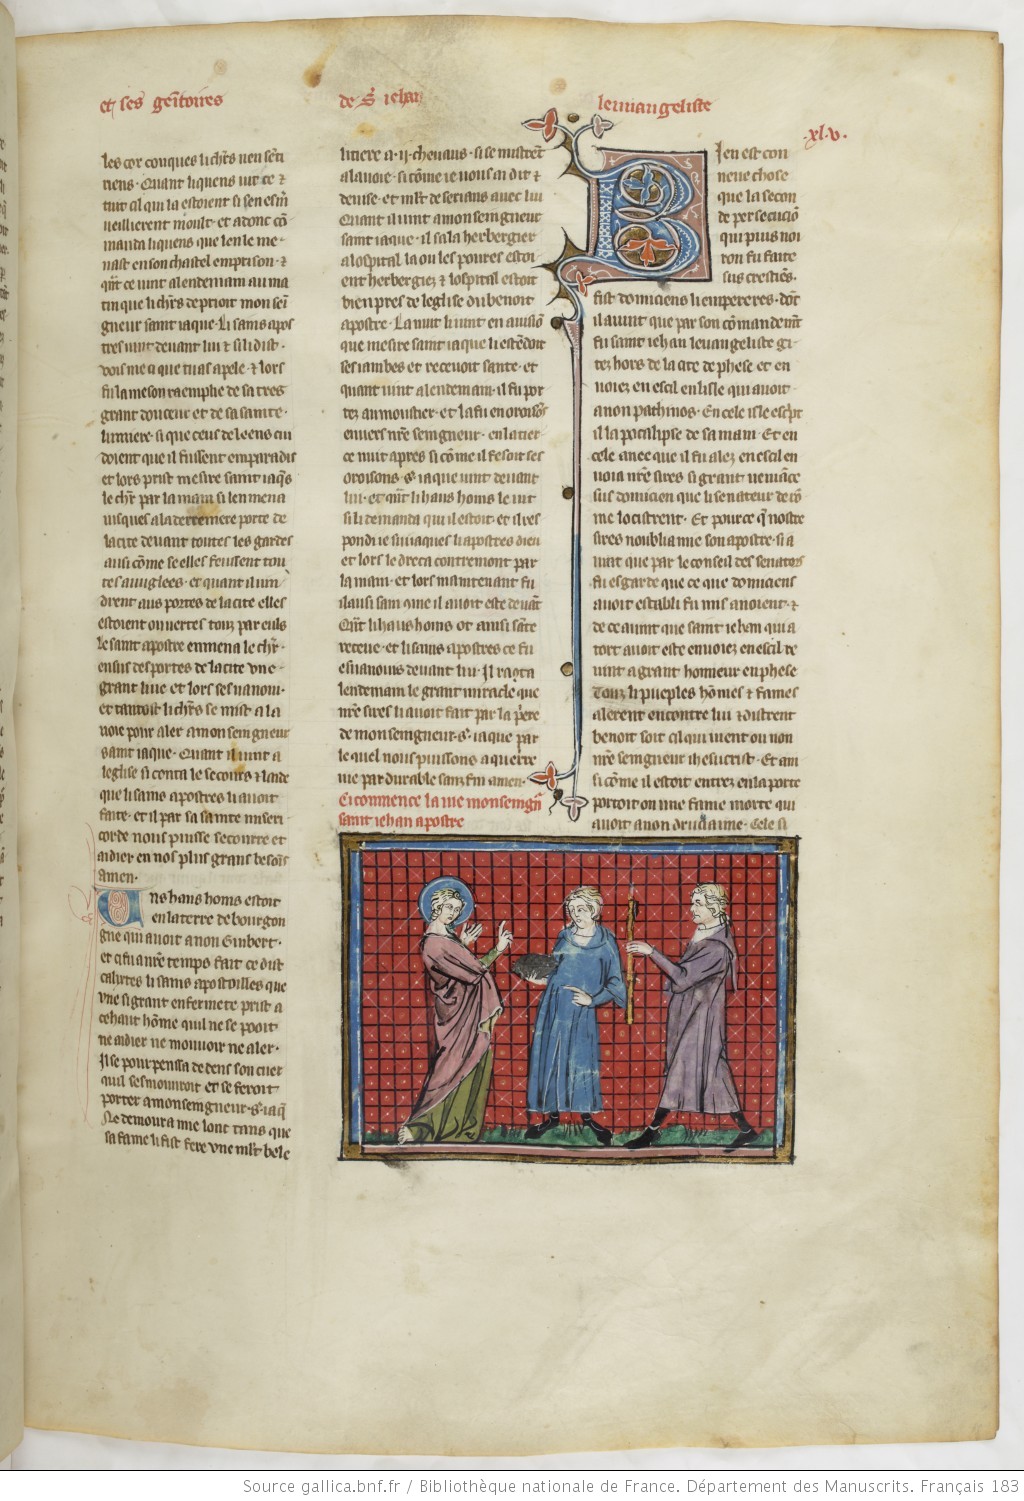 et ses gẽitoires
de .S. iehan
leuuangeliste
.xl.v.
les cor couques li chr̃s uen senti
tiens. Quant li quens uit ce ⁊
tuit cil qui la estoient si sen esm̃
ueillierent moult. et adonc cõ
manda li quens que len le me
nast en son chastel em prison. ⁊
q̃nt ce uint a lendemain au ma
tin que li chr̃s deprioit mon sei
gneur saint iaque. Li sains apos
tres uint deuant lui ⁊ si li dist.
vois me ci que tu as apele. ⁊ lors
fu la meson raemplie de sa tres
grant douceur et de sa sainte
lumiere. si que ceus de leens cui
doient que il fussent em paradis
et lors prist mesire saint iaq̃s
le chr̃ par la main si len mena
iusques a la derreniere porte de
la cite deuant toutes les gardes
ausi cõme se elles feussent tou
tes auuglees. et quant il uin
drent aus portes de la cite elles
estoient ouuertes touz par euls
le saint apostre en mena le chr̃.
ensus des portes de la cite vne
grant liue et lors sesuanoui.
et tantost li chr̃s se mist a la
uoie pour aler a monseigneur
saint iaque. Quant il uint a
leglise si conta le secours ⁊ laide
que li sains apostres li auoit
faite. et il par sa sainte miseri
corde nous puisse secourre et
aidier en nos plus grans besoĩs
amen.
Uns haus homs estoit
en la terre de bourgon
gne qui auoit a non Guibert.
et cil fu a nr̃e temps si cõme dist
calixtes li sains apostoilles que
vne si grant enfermete prist a
cehaut hõme quil ne se pooit
ne aidier ne mouuoir ne aler.
Il se pourpenssa dedens son cuer
quil se smouuroit et se feroit
porter a monseigneur .s. iaq̃
Ne demoura mie lont tans que
sa fame li fist fere vne mlt̃ bele
litiere a .ij. cheuaus. si se mistrẽt
a la uoie. si cõme ie uous ai dit ⁊
deuise. et mlt̃ de serians auec lui
Quant il uint a monseigneur
saint iaque. il sala herbergier
a lospital la ou les poures estoi
ent herbergiez ⁊ lospital estoit
bien pres de leglise du benoit
apostre. La nuit li uint en auisiõ
que mesire saint iaque li estẽdoit
ses iambes et receuoit sante. et
quant uint a lendemain. il fu por
tez au moustier. et la fu en oroisõs
enuers nr̃e seigneur. en la tier
ce nuit apres si cõme il fesoit ses
oroisons. s. iaque uint deuant
lui. et q̃nt li haus homs le uit
si li demanda qui il estoit. et il res
pondi ie sui iaques li apostres dieu
et lors le dreca contremont par
la main. et lors maintenant fu
il ausi sain que il auoit este deuãt
Q̃nt li haus homs ot ainsi sãte
receue. et li sains apostres ce fu
esuanouis deuant lui. Il raconta
lendemain le grant miracle que
nr̃e sires li auoit fait par la p̃iere
de mon seigneur .s. iaque par
le quel nous puissons aquerre
vie pardurable sanz fin amen.
Ci commence la uie monseign̄
saint iehan apostre
Bien est con
neue chose
que la secon
de persecuciõ
qui puis noi
ron fu faite
sus crestiẽs.
fist domiciens li empereres. dõt
il auint que par son cõmandemẽt
fu saint iehan leuuangeliste gi
tez hors de la cite dephese et en
uoiez en escil en lisle qui auoit
a non pathmos. En cele isle escript
il la pocalipse de sa main. Et en
cele anee que il fu alez en escil en
uoia nr̃e sires si grant veniãce
sus domicien que li senateur de rõ
me locistrent. Et pource q̃ nostre
sires noublia mie son apostre. si a
uint que par le conseil des senators
fu esgarde que ce que domiciens
auoit establi fu mis a noient. ⁊
de ce auint que saint iehan qui a
tort auoit este enuoiez en escil re
uint a grant honneur en phese
Touz li pueples hõmes ⁊ fames
alerent encontre lui ⁊ distrent
benoit soit cil qui uient ou non
nr̃e seigneur ihesucrist. Et ain
si cõme il estoit entrez en la porte
portoit on une fame morte qui
auoit a non drusiaine. Cele si
Source gallica.bnf.fr / Bibliothèque nationale de France. Département des Manuscrits. Français 183